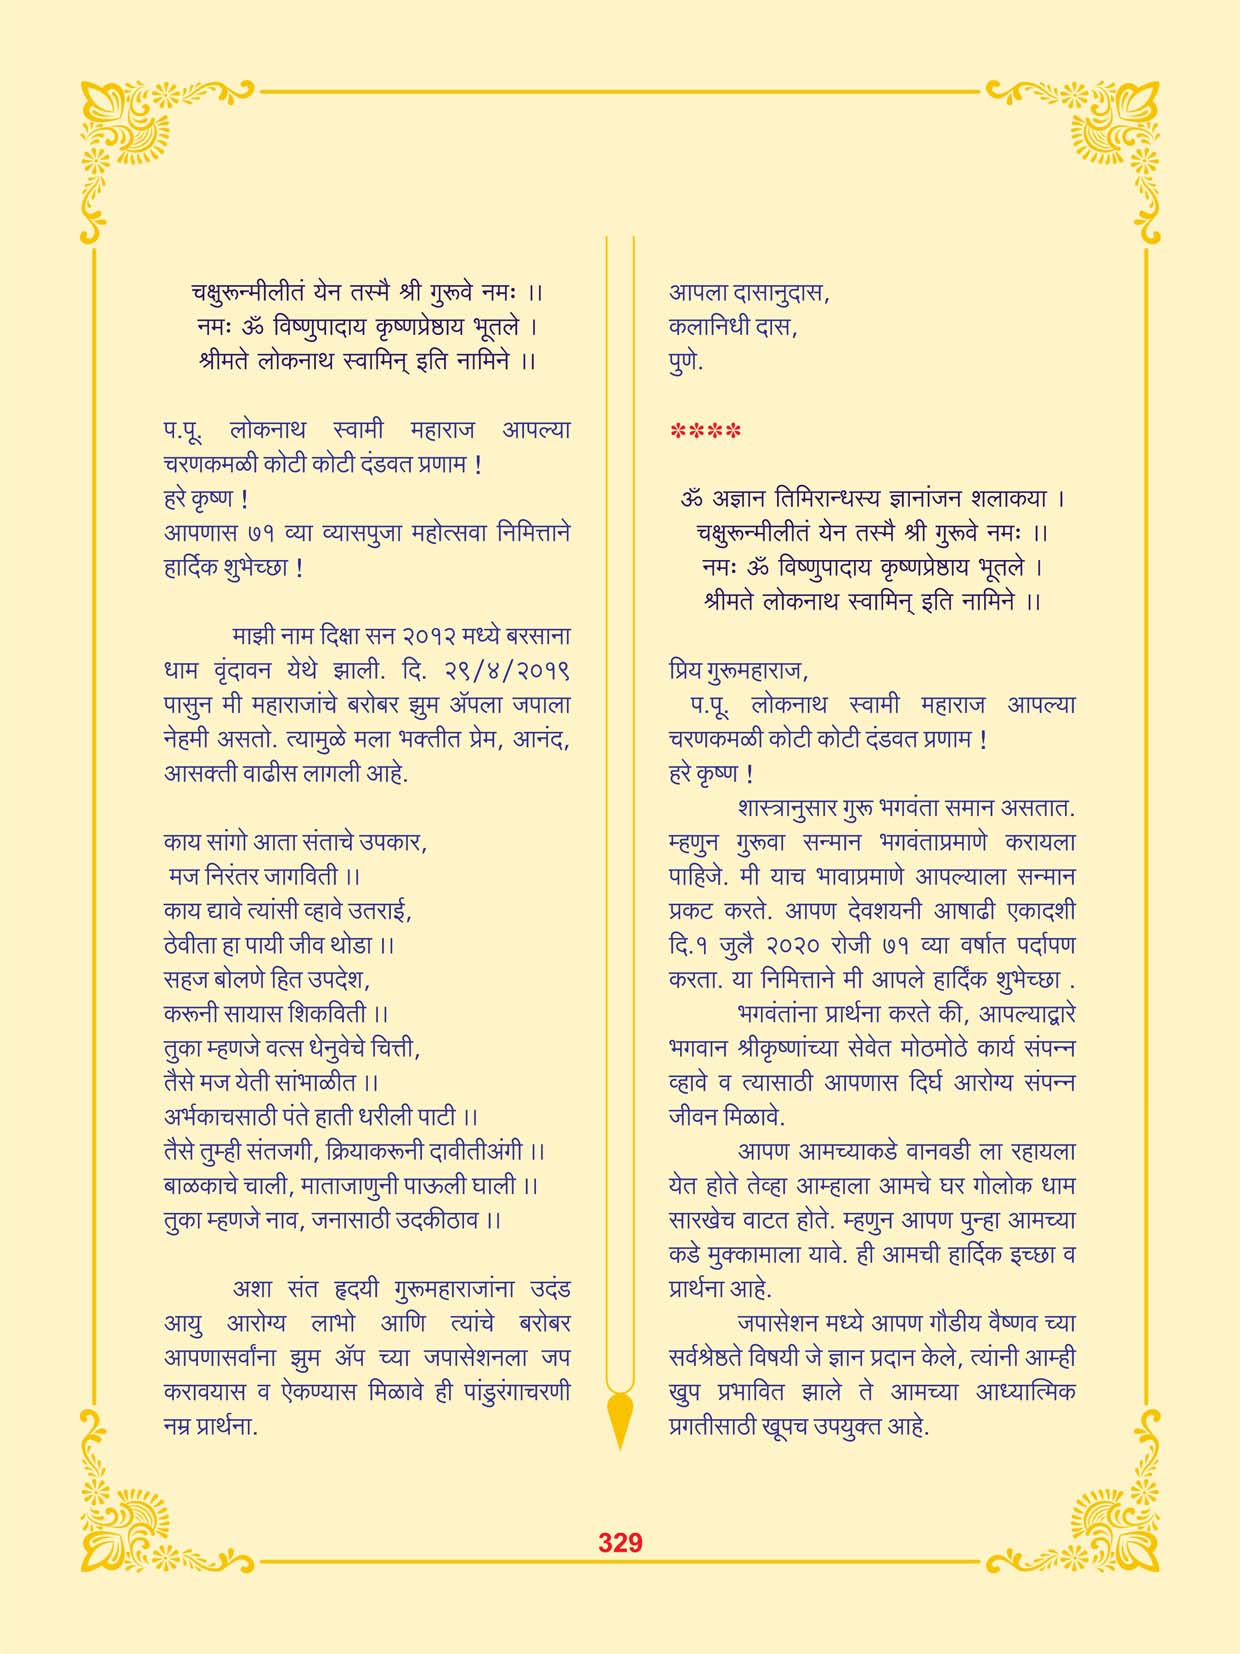 चक्षुरून्मीलीतं येन तस्मै श्री गुरूवे नमः ।।
नमः ॐ विष्णुपादाय कृष्णप्रेष्ठाय भूतले ।
श्रीमते लोकनाथ स्वामिन् इति नामिने ।।
प.पू. लोकनाथ स्वामी महाराज आपल्या
चरणकमळी कोटी कोटी दंडवत प्रणाम !
हरे कृष्ण !
आपणास ७१ व्या व्यासपुजा महोत्सवा निमित्ताने
हार्दिक शुभेच्छा !
माझी नाम दिक्षा सन २०१२ मध्ये बरसाना
धाम वृंदावन येथे झाली. दि. २९/४/२०१९
पासुन मी महाराजांचे बरोबर झुम ॲपला जपाला
नेहमी असतो. त्यामुळे मला भक्तीत प्रेम, आनंद,
आसक्ती वाढीस लागली आहे.
काय सांगो आता संताचे उपकार,
मज निरंतर जागविती ।।
काय द्यावे त्यांसी व्हावे उतराई,
ठेवीता हा पायी जीव थोडा ।।
सहज बोलणे हित उपदेश,
करूनी सायास शिकविती ।।
तुका म्हणजे वत्स धेनुवेचे चित्ती,
तैसे मज येती सांभाळीत ।।
अर्भकाचसाठी पंते हाती धरीली पाटी ।।
तैसे तुम्ही संतजगी, क्रियाकरूनी दावीतीअंगी ।।
बाळकाचे चाली, माताजाणुनी पाऊली घाली ।।
तुका म्हणजे नाव, जनासाठी उदकीठाव ।।
अशा संत हृदयी गुरूमहाराजांना उदंड
आयु आरोग्य लाभो आणि त्यांचे बरोबर
आपणासर्वांना झुम ॲप च्या जपासेशनला जप
करावयास व ऐकण्यास मिळावे ही पांडुरंगाचरणी
नम्र प्रार्थना.
आपला दासानुदास,
कलानिधी दास,
पुणे.
****
ॐ अज्ञान तिमिरान्धस्य ज्ञानांजन शलाकया ।
चक्षुरून्मीलीतं येन तस्मै श्री गुरूवे नमः ।।
नमः ॐ विष्णुपादाय कृष्णप्रेष्ठाय भूतले ।
श्रीमते लोकनाथ स्वामिन् इति नामिने ।।
प्रिय गुरूमहाराज,
प.पू. लोकनाथ स्वामी महाराज आपल्या
चरणकमळी कोटी कोटी दंडवत प्रणाम !
हरे कृष्ण !
शास्त्रानुसार गुरू भगवंता समान असतात.
म्हणुन गुरूवा सन्मान भगवंताप्रमाणे करायला
पाहिजे. मी याच भावाप्रमाणे आपल्याला सन्मान
प्रकट करते. आपण देवशयनी आषाढी एकादशी
दि.१ जुलै २०२० रोजी ७१ व्या वर्षात पर्दापण
करता. या निमित्ताने मी आपले हार्दिक शुभेच्छा .
भगवंतांना प्रार्थना करते की, आपल्याद्वारे
भगवान श्रीकृष्णांच्या सेवेत मोठमोठे कार्य संपन्न
व्हावे व त्यासाठी आपणास दिर्घ आरोग्य संपन्न
जीवन मिळावे.
आपण आमच्याकडे वानवडी ला रहायला
येत होते तेव्हा आम्हाला आमचे घर गोलोक धाम
सारखेच वाटत होते. म्हणुन आपण पुन्हा आमच्या
कडे मुक्कामाला यावे. ही आमची हार्दिक इच्छा व
प्रार्थना आहे.
जपासेशन मध्ये आपण गौडीय वैष्णव च्या
सर्वश्रेष्ठते विषयी जे ज्ञान प्रदान केले, त्यांनी आम्ही
खुप प्रभावित झाले ते आमच्या आध्यात्मिक
प्रगतीसाठी खूपच उपयुक्त आहे.
329